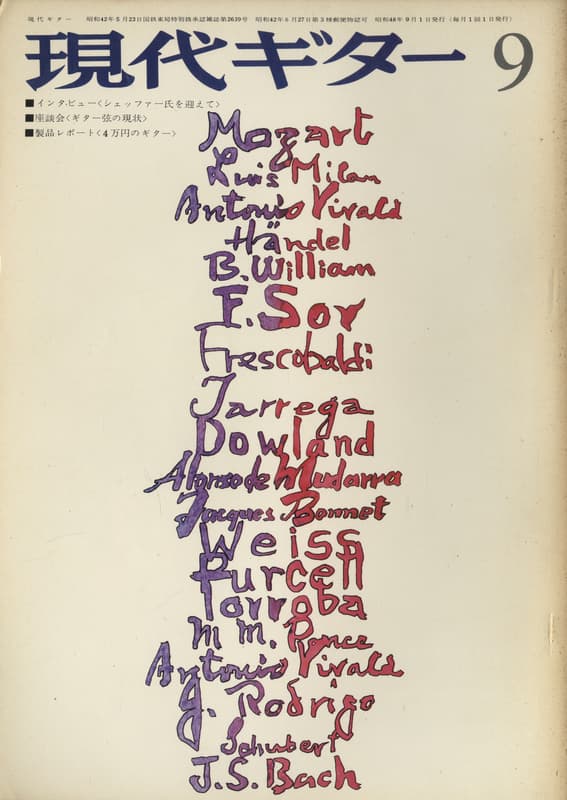 現代ギター 昭和42年5月23日国鉄東局特別扱承認雑誌第2639号 昭和42年6月27日第3種郵便物認可 昭和48年9月1日発行(毎月1回1日発行)
現代ギター 9
■インタ・ビュー〈シェッファー氏を迎えて〉
■座談会〈ギター弦の現状〉
■製品レポート〈4万円のギター〉
Mozart
Luis Milan
Antonio Vivald
Händel
B.William
F.Sor
Frescobaldi
Tarrega
Dowland
Alonso de Mudarra
Jacques Bonnet
Weiss
Purcell
Torroba
M M. Ponce
Antonio Vivald
J. Rodrigo
Schubert
J.S.Bach